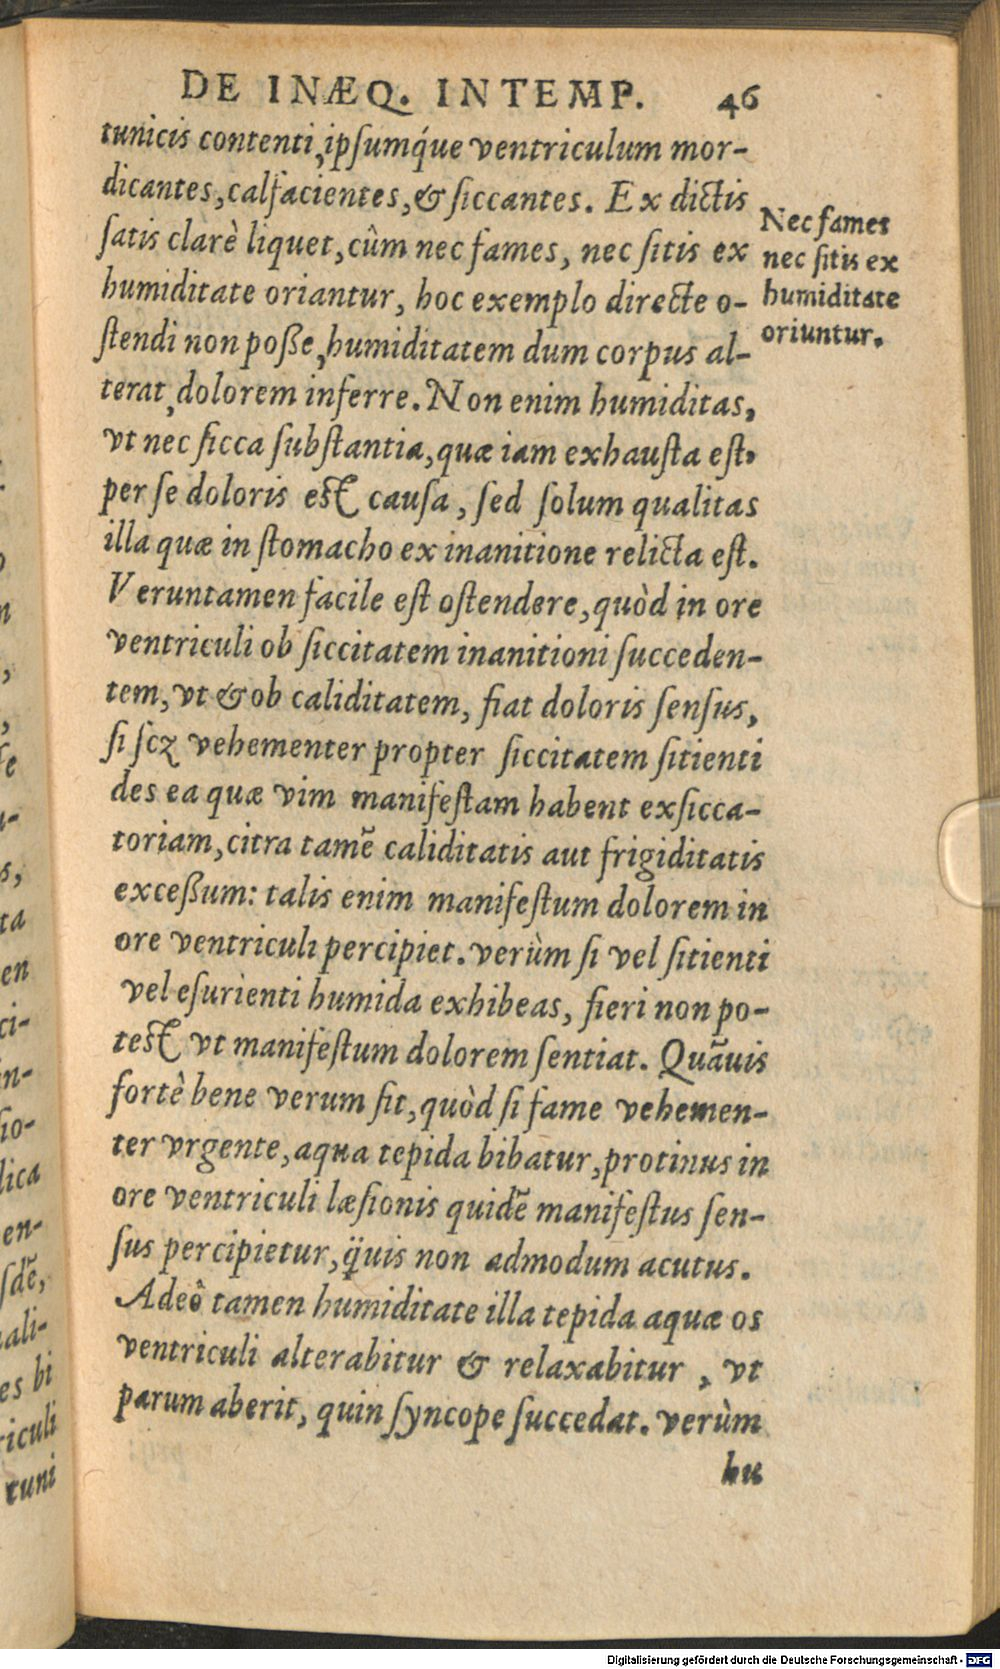 DE INÆQ. INTEMP. 46
tunicis contenti, ipſumq́ue ventriculum mor-
dicantes, calfacientes, & ſiccantes. Ex dictis
ſatis clarè liquet, cûm nec fames, nec ſitis ex
humiditate oriantur, hoc exemplo directe o-
ſtendi non poße, humiditatem dum corpus al-
terat, dolorem inferre. Non enim humiditas,
vt nec ſicca ſubſtantia, quæ iam exhauſta eſt,
per ſe doloris est causa, ſed ſolum qualitas
illa quæ in ſtomacho ex inanitione relicta eſt.
Veruntamen facile eſt oſtendere, quòd in ore
ventriculi ob ſiccitatem inanitioni ſucceden-
tem, vt & ob caliditatem, fiat doloris ſenſus,
ſi ſcꝫ vehementer propter ſiccitatem ſitienti
des ea quæ vim manifeſtam habent exſicca-
toriam, citra tamē caliditatis aut frigiditatis
exceßum: talis enim manifeſtum dolorem in
ore ventriculi percipiet. verùm ſi vel ſitienti
vel eſurienti humida exhibeas, fieri non po-
test vt manifeſtum dolorem ſentiat. Quāuis
fortè bene verum ſit, quòd ſi fame vehemen-
ter vrgente, aqua tepida bibatur, protinus in
ore ventriculi læſionis quidē manifeſtus ſen-
ſus percipietur, q̃uis non admodum acutus.
Adeô tamen humiditate illa tepida aquæ os
ventriculi alterabitur & relaxabitur, vt
parum aberit, quin ſyncope ſuccedat. verùm
hu
Nec fames
nec ſitis ex
humiditate
oriuntur.
Digitalisierung gefördert durch die Deutsche Forschungsgemeinschaft - DFG